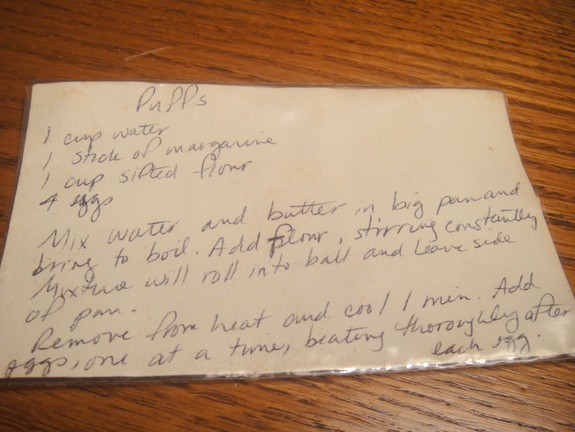 Puffs
1 cup water
1 stick of margarine
1 cup sifted flour
4 eggs
Mix water and butter in big pan and
bring to boil. Add flour, stirring constantly
Mixture will roll into ball and leave side
of pan.
Remove from heat and cool 1 min. Add
eggs, one at a time, beating thoroughly after
each egg.